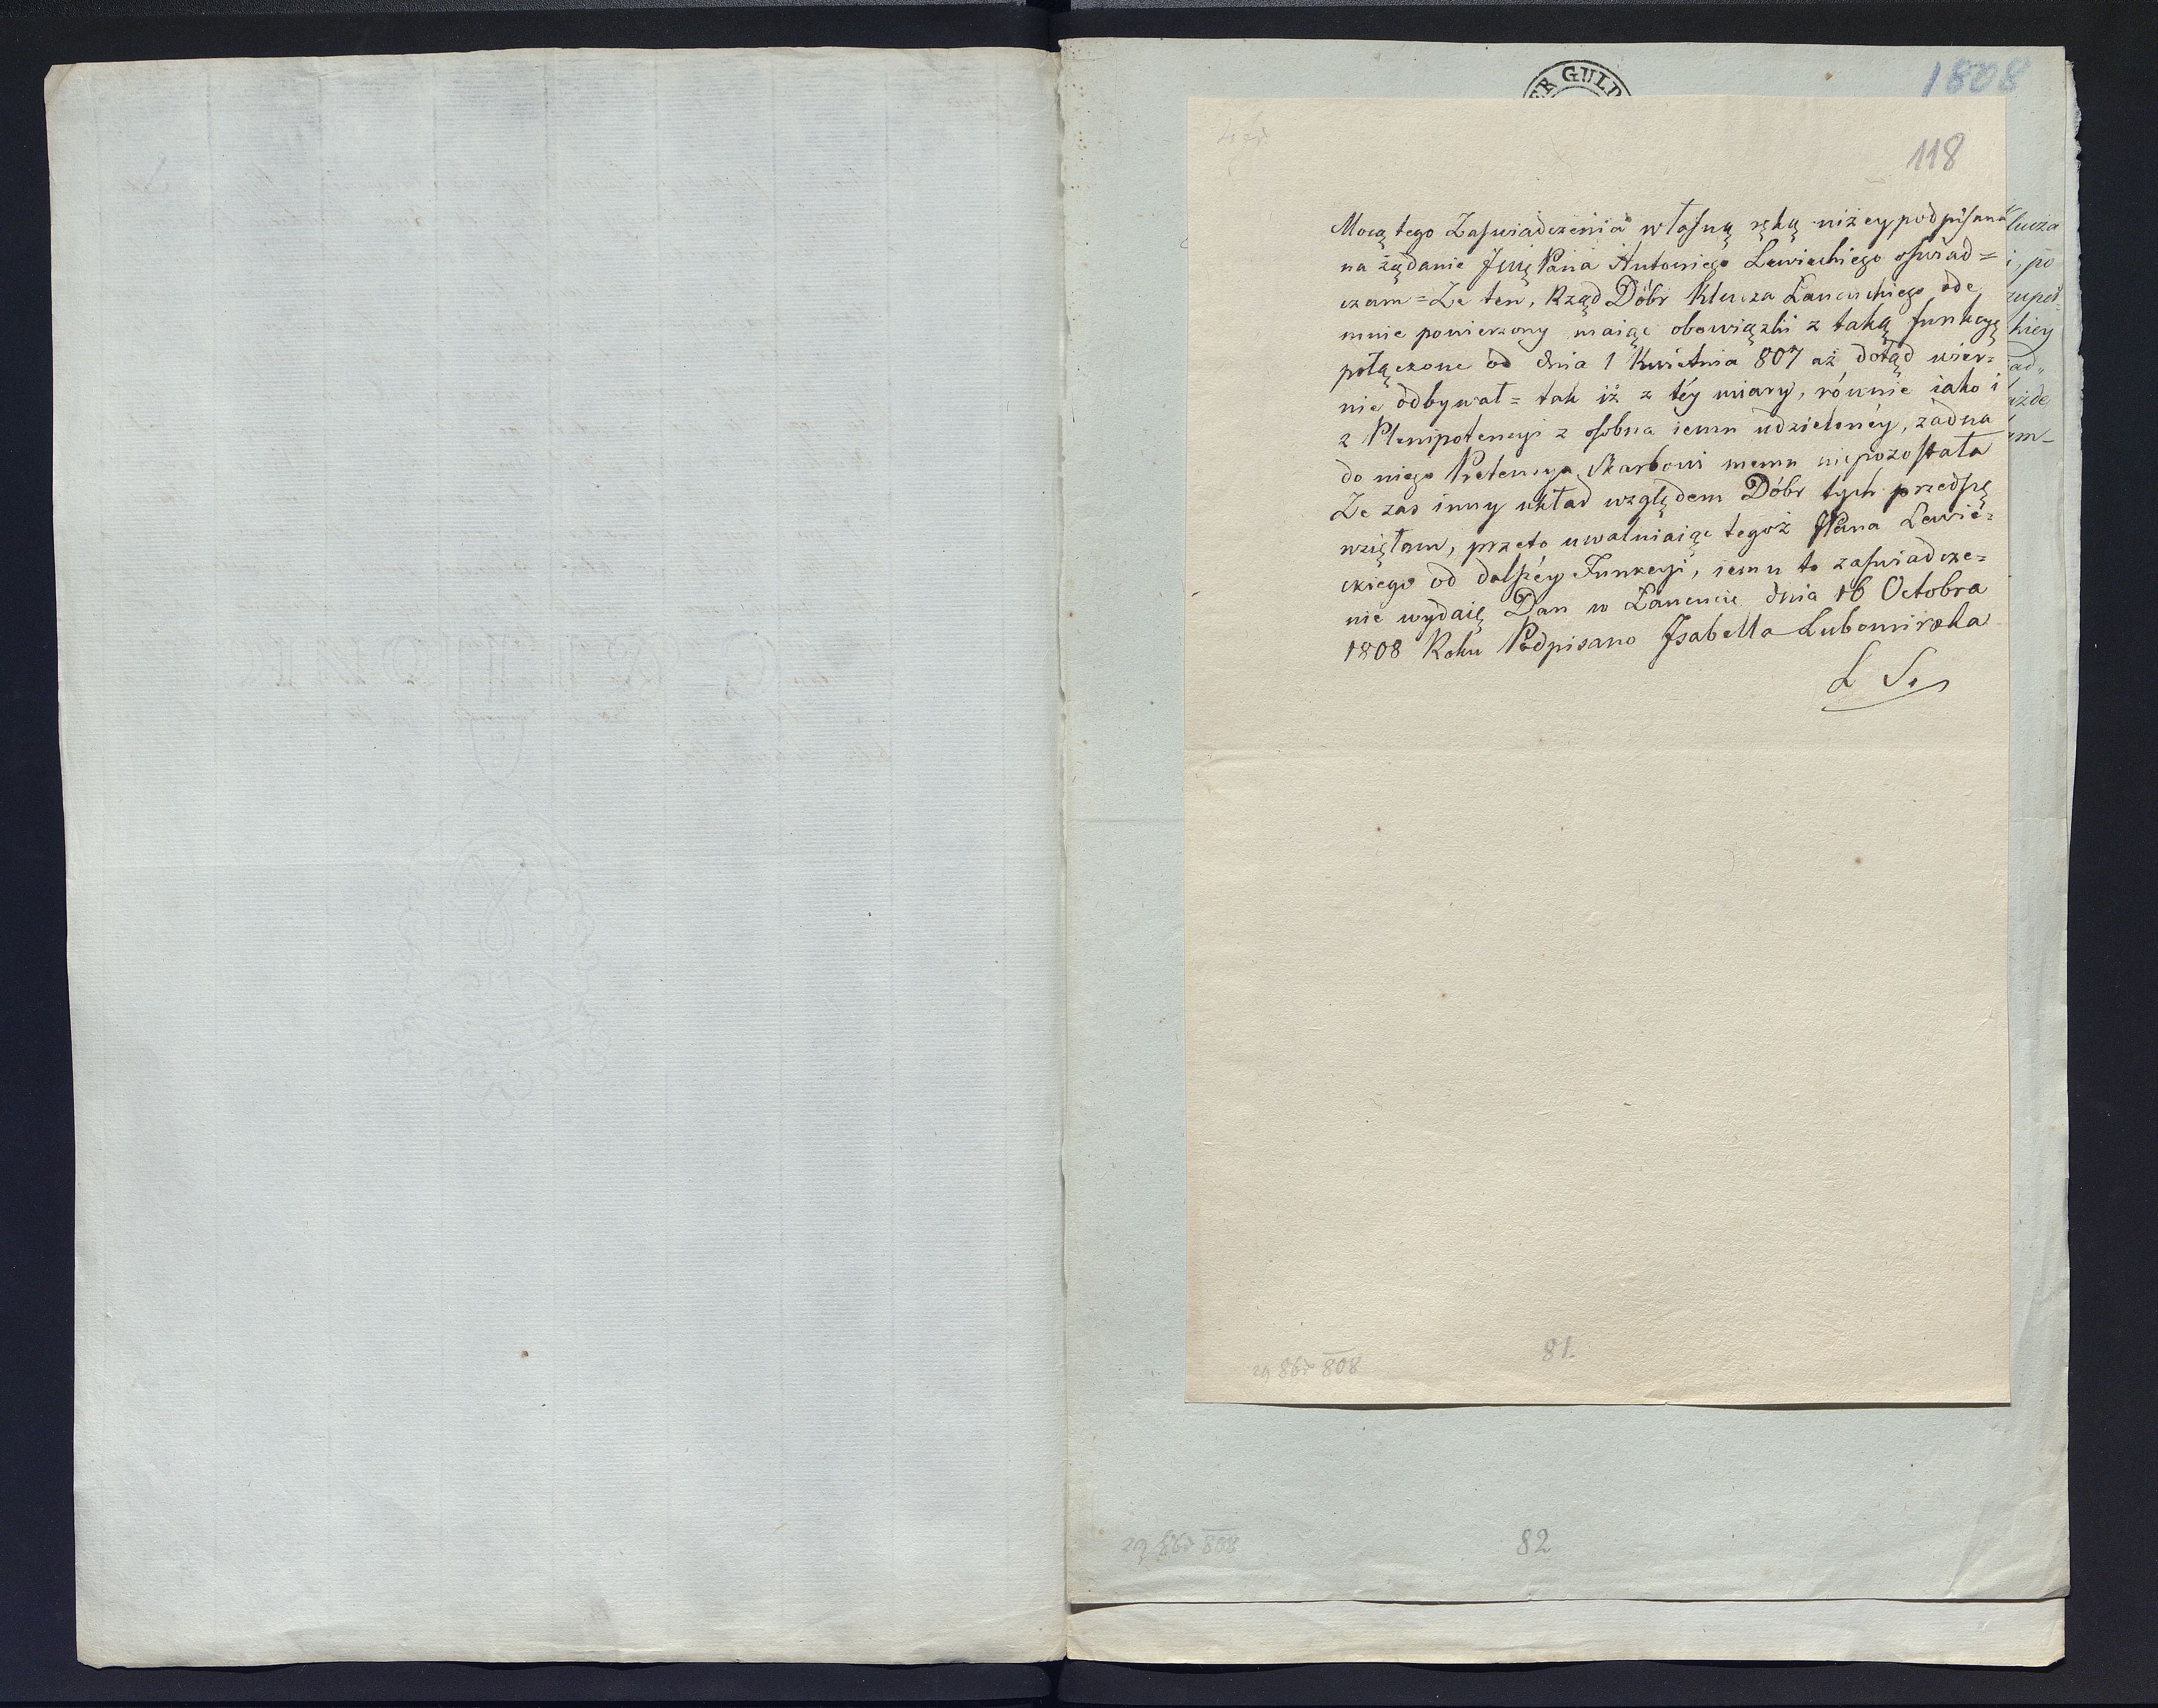 ER GULD
1808
118
Mocą tego Zaświadczenia własną ręką niżey podpisana
na żądanie Jmę Pana Antoniego Lewickiego oświad=
czam = Ze ten, Rząd Dóbr Klucza Łancuckiego ode
mnie powierzony maiąc obowiązki z taką funkcyą
połączone od dnia 1 Kwietnia 807 aż dotąd wier=
nie odbywał = tak iż z téy miary, równie iako i
z Plenipotencyi z osobna iemu udzielonéy, żadna
do niego Pretensya Skarbowi memu niepozostała
Ze zas inny układ względem Dóbr tych przedsię
wzięłam, przeto uwalniaiąc tegoż JPana Lewic=
ckiego od dalszéy Funkcyi, iemu to zaświadcze=
nie wydaię Dan w Łancucie dnia 16 Octobra
1808 Roku Podpisano Isabella Lubomirska
L S.
lucza
i, po
zupeł=
kiey
ad„
ażde
am–
81.
808
82
808